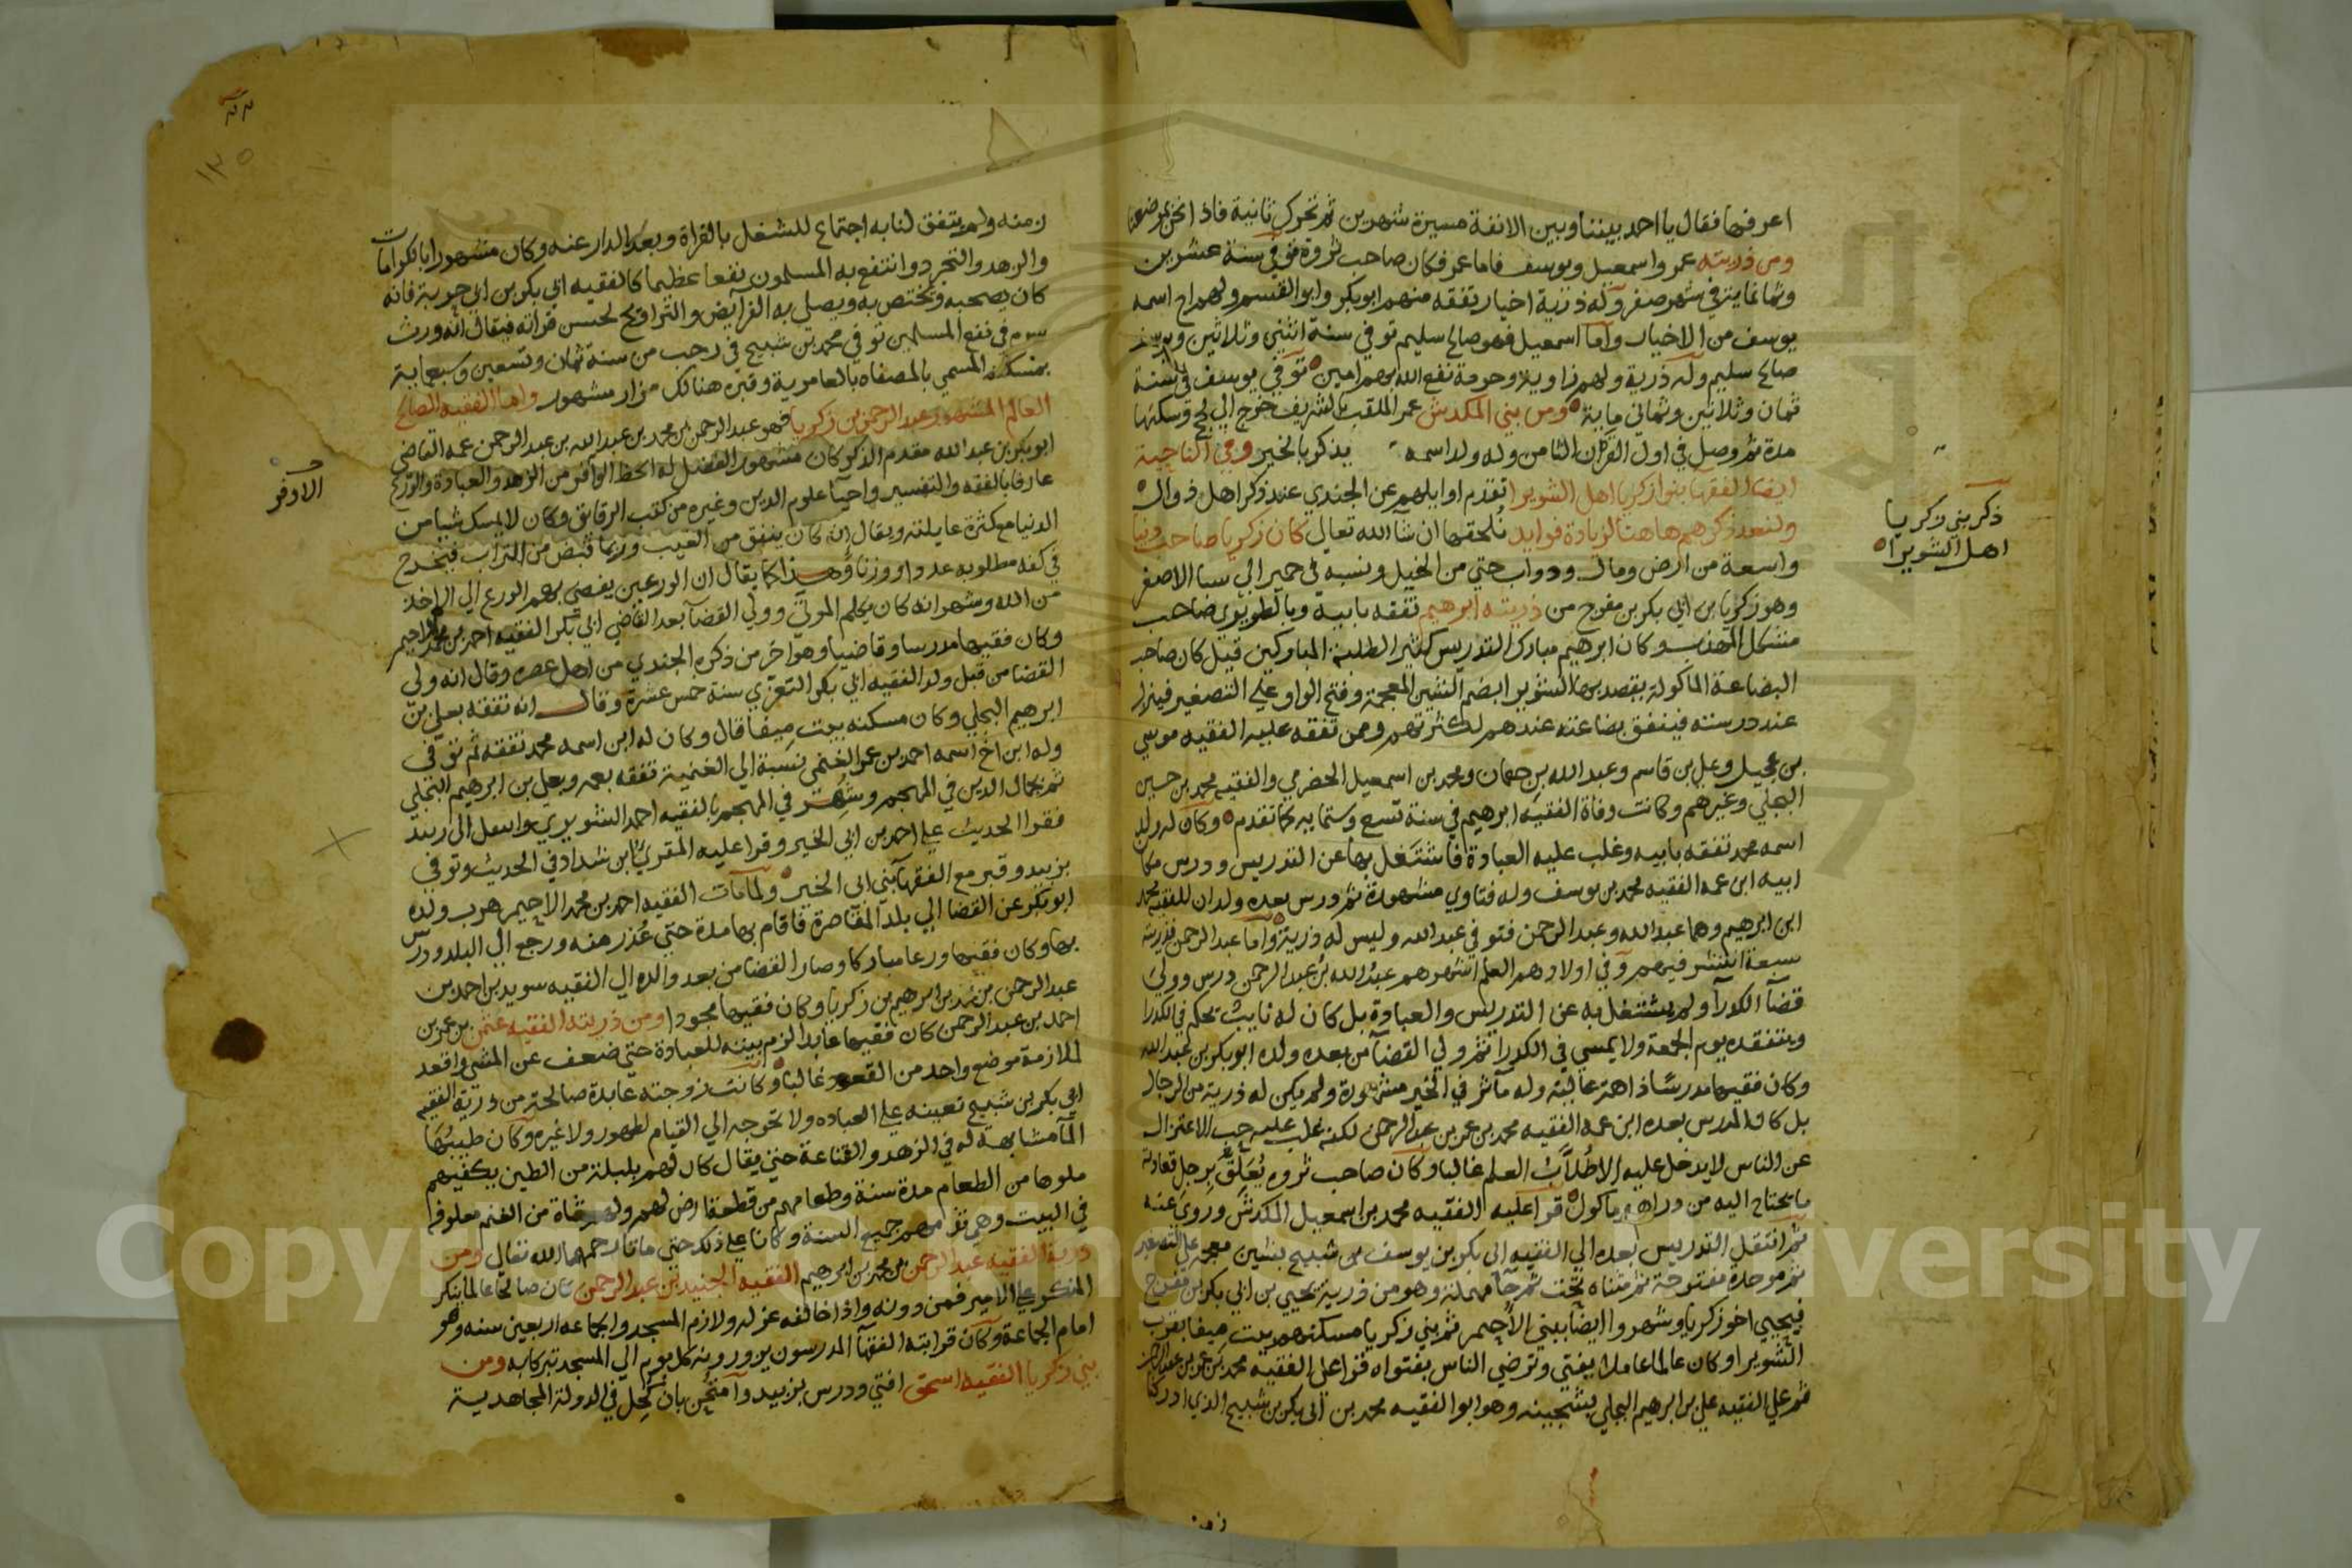 اعرفها فقال يا احمد بيننا وبين الانفة مسيرة شهرين ثم تحرك ثانية فاذا نحن بموضعنا
ومن ذريته عمر واسمعيل ويوسف فاما عمر فكان صاحب ثروة توفي سنة عشرين
وثمانماية في شهر صفر وله ذرية اخيار يتفقه منهم ابو بكر وابو القسم ولهم اخ اسمه
يوسف من الاخيار واما اسمعيل فهو صالح سليم توفي سنة اثنتي وثلاثين ويوسف
صالح سليم وله ذرية ولهم زاوية وحرمة نفع الله بهم امين توفي يوسف في سنة
ثمان وثلاثين وثماني ماية ومن بني المكدش عمر الملقب بالشريف خرج الي لحج وسكنها
مدة ثم وصل في اول القران الثامن وله ولد اسمه يذكر بالخير وفي الناحية
ايضا الفقها بنوا زكريا اهل الشويرا تقدم اوايلهم عن الجندي عند ذكر اهل ذوال
ولنعد ذكرهم هاهنا لزيادة فوايد نلحقها ان شا الله تعالي كان زكريا صاحب دنيا
واسعة من ارض ومال ودواب حتي من الخيل ونسبه في حمير الي سبا الاصغر
وهو زكريا بن ابي بكر بن مفرح من ذريته ابرهيم تفقه بابيه وبالطويري صاحب
مشكل المهذب وكان ابرهيم مبارك التدريس كثير الطلبة المباركين قيل كان صاحب
البضاعة الماكولة يقصد بها الشويرا بضم الشين المعجمة وفتح الواو علي التصغير فينزل
عند درسته فينفق بضاعته عندهم لكثرتهم وممن تفقه عليه الفقيه موسي
بن عجيل وعلي بن قاسم وعبد الله بن جعمان ومحمد بن اسمعيل الحضرمي والفقيه محمد بن حسين
البجلي وغيرهم وكانت وفاة الفقيه ابرهيم في سنة تسع وستمايه كما تقدم وكان له ولد
اسمه محمد تفقه بابيه وغلب عليه العبادة فاشتغل بها عن التدريس ودرس مكان
ابيه ابن عمه الفقيه محمد بن يوسف وله فتاوي مشهورة ثم درس بعده ولدان للفقيه محمد
ابن ابرهيم وهما عبد الله وعبد الرحمن فتوفي عبد الله وليس له ذرية واما عبد الرحمن فذريته
سبعة انتشر فيهم وفي اولادهم العلم اشهرهم عبد الله بن عبد الرحمن درس وولي
قضآ الكدرآ ولم يشتغل به عن التدريس والعبادة بل كان له نايب يحكم في الكدرا
ويتفقده يوم الجمعة ولا يمسي في الكدرا ثم ولي القضآ من بعده ولده ابو بكر بن عبد الله
وكان فقيها مدرسا ذا همة عالية وله مآثر في الخير مشهورة ولم يكن له ذرية من الرجال
بل كان المدرس بعده ابن عمه الفقيه محمد بن عمر بن عبد الرحمن لكنه غلب عليه حب الاعتزال
عن الناس لا يدخل عليه الا طلاب العلم غالبا وكان صاحب ثروه
ما يحتاج اليه من دراهم وماكول قرا عليه الفقيه محمد بن اسمعيل المكدش وروي عنه
ثم انتقل التدريس بعده الي الفقيه ابي بكر بن يوسف بن شبيح بشين معجمة علي التصغير
ثم موحدة مفتوحة ثم مثناه تحت ثم حآ مهملة وهو من ذرية يحيي بن ابي بكر بن مفرح
فيحيي اخو زكريا وشهروا ايضا ببني الاحيمر ثم بني زكريا مسكنهم بيت ميفا بقرب
الشويرا وكان عالما عاملا يفتي وترضي الناس بفتواه قرا علي الفقيه محمد بن عمر بن عبد الرحمن
ثم علي الفقيه علي بن ابرهيم البجلي بشجينه وهو ابو الفقيه محمد بن ابي بكر بن شبيح الذي ادركنا
زمنه
ذكر بني زكريا
اهل الشويرا
١٣٥
زمنه ولم يتفق لنا به اجتماع للشغل بالقراة وبعد الدار عنه وكان مشهورا بالكرامات
والزهد والتجرد وانتفع به المسلمون نفعا عظيما كالفقيه ابي بكر بن ابي حربة فانه
كان يصحبه ويختص به ويصلي به الفرآيض والتراويح لحسن قراته فيقال انه ورث
في نفع المسلمين توفي محمد بن شبيح في رجب من سنة ثمان وتسعين وسبعماية
بمسكنه المسمي بالمصفاه بالعامرية وقبره هنالك مزار مشهور واما الفقيه الصالح
العالم المشهور عبد الرحمن بن زكريا فهو عبد الرحمن بن محمد بن عبد الله بن عبد الرحمن عمه القاضي
ابو بكر بن عبد الله مقدم الذكر كان مشهور الفضل له الحظ الوافر من الزهد والعبادة والورع
عارفا بالفقه والتفسير واحيآ علوم الدين وغيره من كتب الرقايق وكان لا يمسك شيا من
الدنيا مع كثرة عايلته ويقال انه كان ينفق من الغيب وربما قبض من التراب فيخرج
في كفه مطلوبه عددا ووزنا وهذا كما يقال ان الورعين يفضي بهم الورع الي الاخذ
من الله وشهر انه كان يكلم الموتي وولي القضآ بعد القاضي ابي بكر الفقيه احمد بن محمد الاحيمر
وكان فقيها مدرسا وقاضيا وهو اخر من ذكره الجندي من اهل عصره وقال انه ولي
القضا من قبل ولد الفقيه ابي بكر التعزي سنة خمس عشرة وقال انه تفقه بعلي بن
ابرهيم البجلي وكان مسكنه بيت ميفا قال وكان له ابن اسمه محمد تفقه ثم توفي
وله ابن اخ اسمه احمد بن عمر الغنمي نسبة الي الغنمية تفقه بعمه وبعلي بن ابرهيم البجلي
ثم بجمال الدين في المهجم وشهر في المهجم بالفقيه احمد الشويري وانتقل الي زبيد
فقرا الحديث علي احمد بن ابي الخير وقرا عليه المقري ابن شداد في الحديث وتوفي
بزبيد وقبر مع الفقهآ بني ابي الخير ولما مات الفقيه احمد بن محمد الاحيمر هرب ولده
ابو بكر عن القضا الي بلد المقاصرة فاقام بها مدة حتي عذر منه ورجع الي البلد ودرس
بها وكان فقيها ورعا مباركا وصار القضا من بعد والده الي الفقيه سويد بن احمد بن
عبد الرحمن بن محمد بن ابرهيم بن زكريا وكان فقيها مجودا ومن ذريته الفقيه عثمن بن عمر بن
احمد بن عبد الرحمن كان فقيها عابدا لزم بيته للعبادة حتي ضعف عن المشي واقعد
لملازمة موضع واحد من القعود غالبا وكانت زوجته عابدة صالحة من ذرية الفقيه
ابي بكر بن شبيح تعينه علي العباده ولا تحوجه الي القيام لطهور ولا غيره وكان طبيبها
المآ مشابهة له في الزهد والقناعة حتي يقال كان لهم بلبلة من الطين يكفيهم
ملوها من الطعام مدة سنة وطعامهم من قطعة ارض لهم ولهم شاة من الغنم معلوفة
في البيت وهي تؤدمهم جميع السنة وكانا علي ذلك حتي ماتا رحمهما الله تعالي ومن
ذرية الفقيه عبد الرحمن بن محمد بن ابرهيم الفقيه الجنيد بن عبد الرحمن كان صالحا عالما ينكر
المنكر علي الامير فمن دونه واذا خالفه عزله ولازم المسجد والجماعه اربعين سنه وهو
امام الجماعة وكان قرابته الفقهآ المدرسون يزورونه كل يوم الي المسجد تبركا به ومن
بني زكريا الفقيه اسحق افتي ودرس بزبيد وآمتحن بان كحل في الدولة المجاهدية
الاوفر